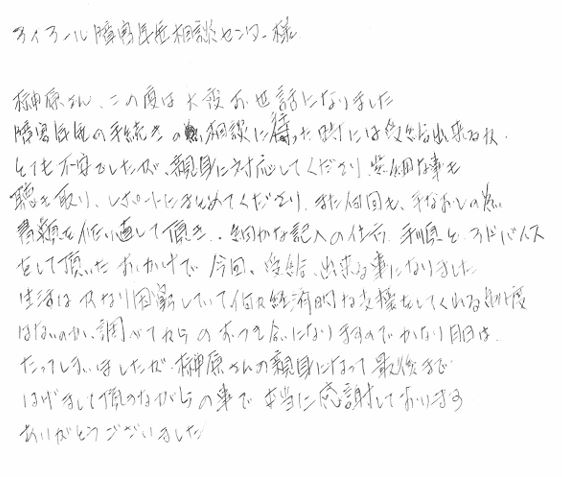 アイアール障害年金相談センター様
榊原さん、この度は大変お世話になりました
障害年金の手続きの為相談に待った時には受給出来るか
とても不安でしたが、親身に対応してくださり、些細な事も
聴き取り、レポートにまとめてくださり、また何回も、手なおしの為
書類を使い直して頂き、細かな記入の仕方、手順と、アドバイス
をして頂いたおかげで今回、受給、出来る事になりました
生活はかなり困窮していて何か経済的な支援をしてくれる制度
はないのか、調べてからのおつき合いになりますのでかなり月日は、
たってしまいましたが、榊原さんの親身になって最後まで
はげまして頂きながらの事で本当に応謝しております
ありがとうございました